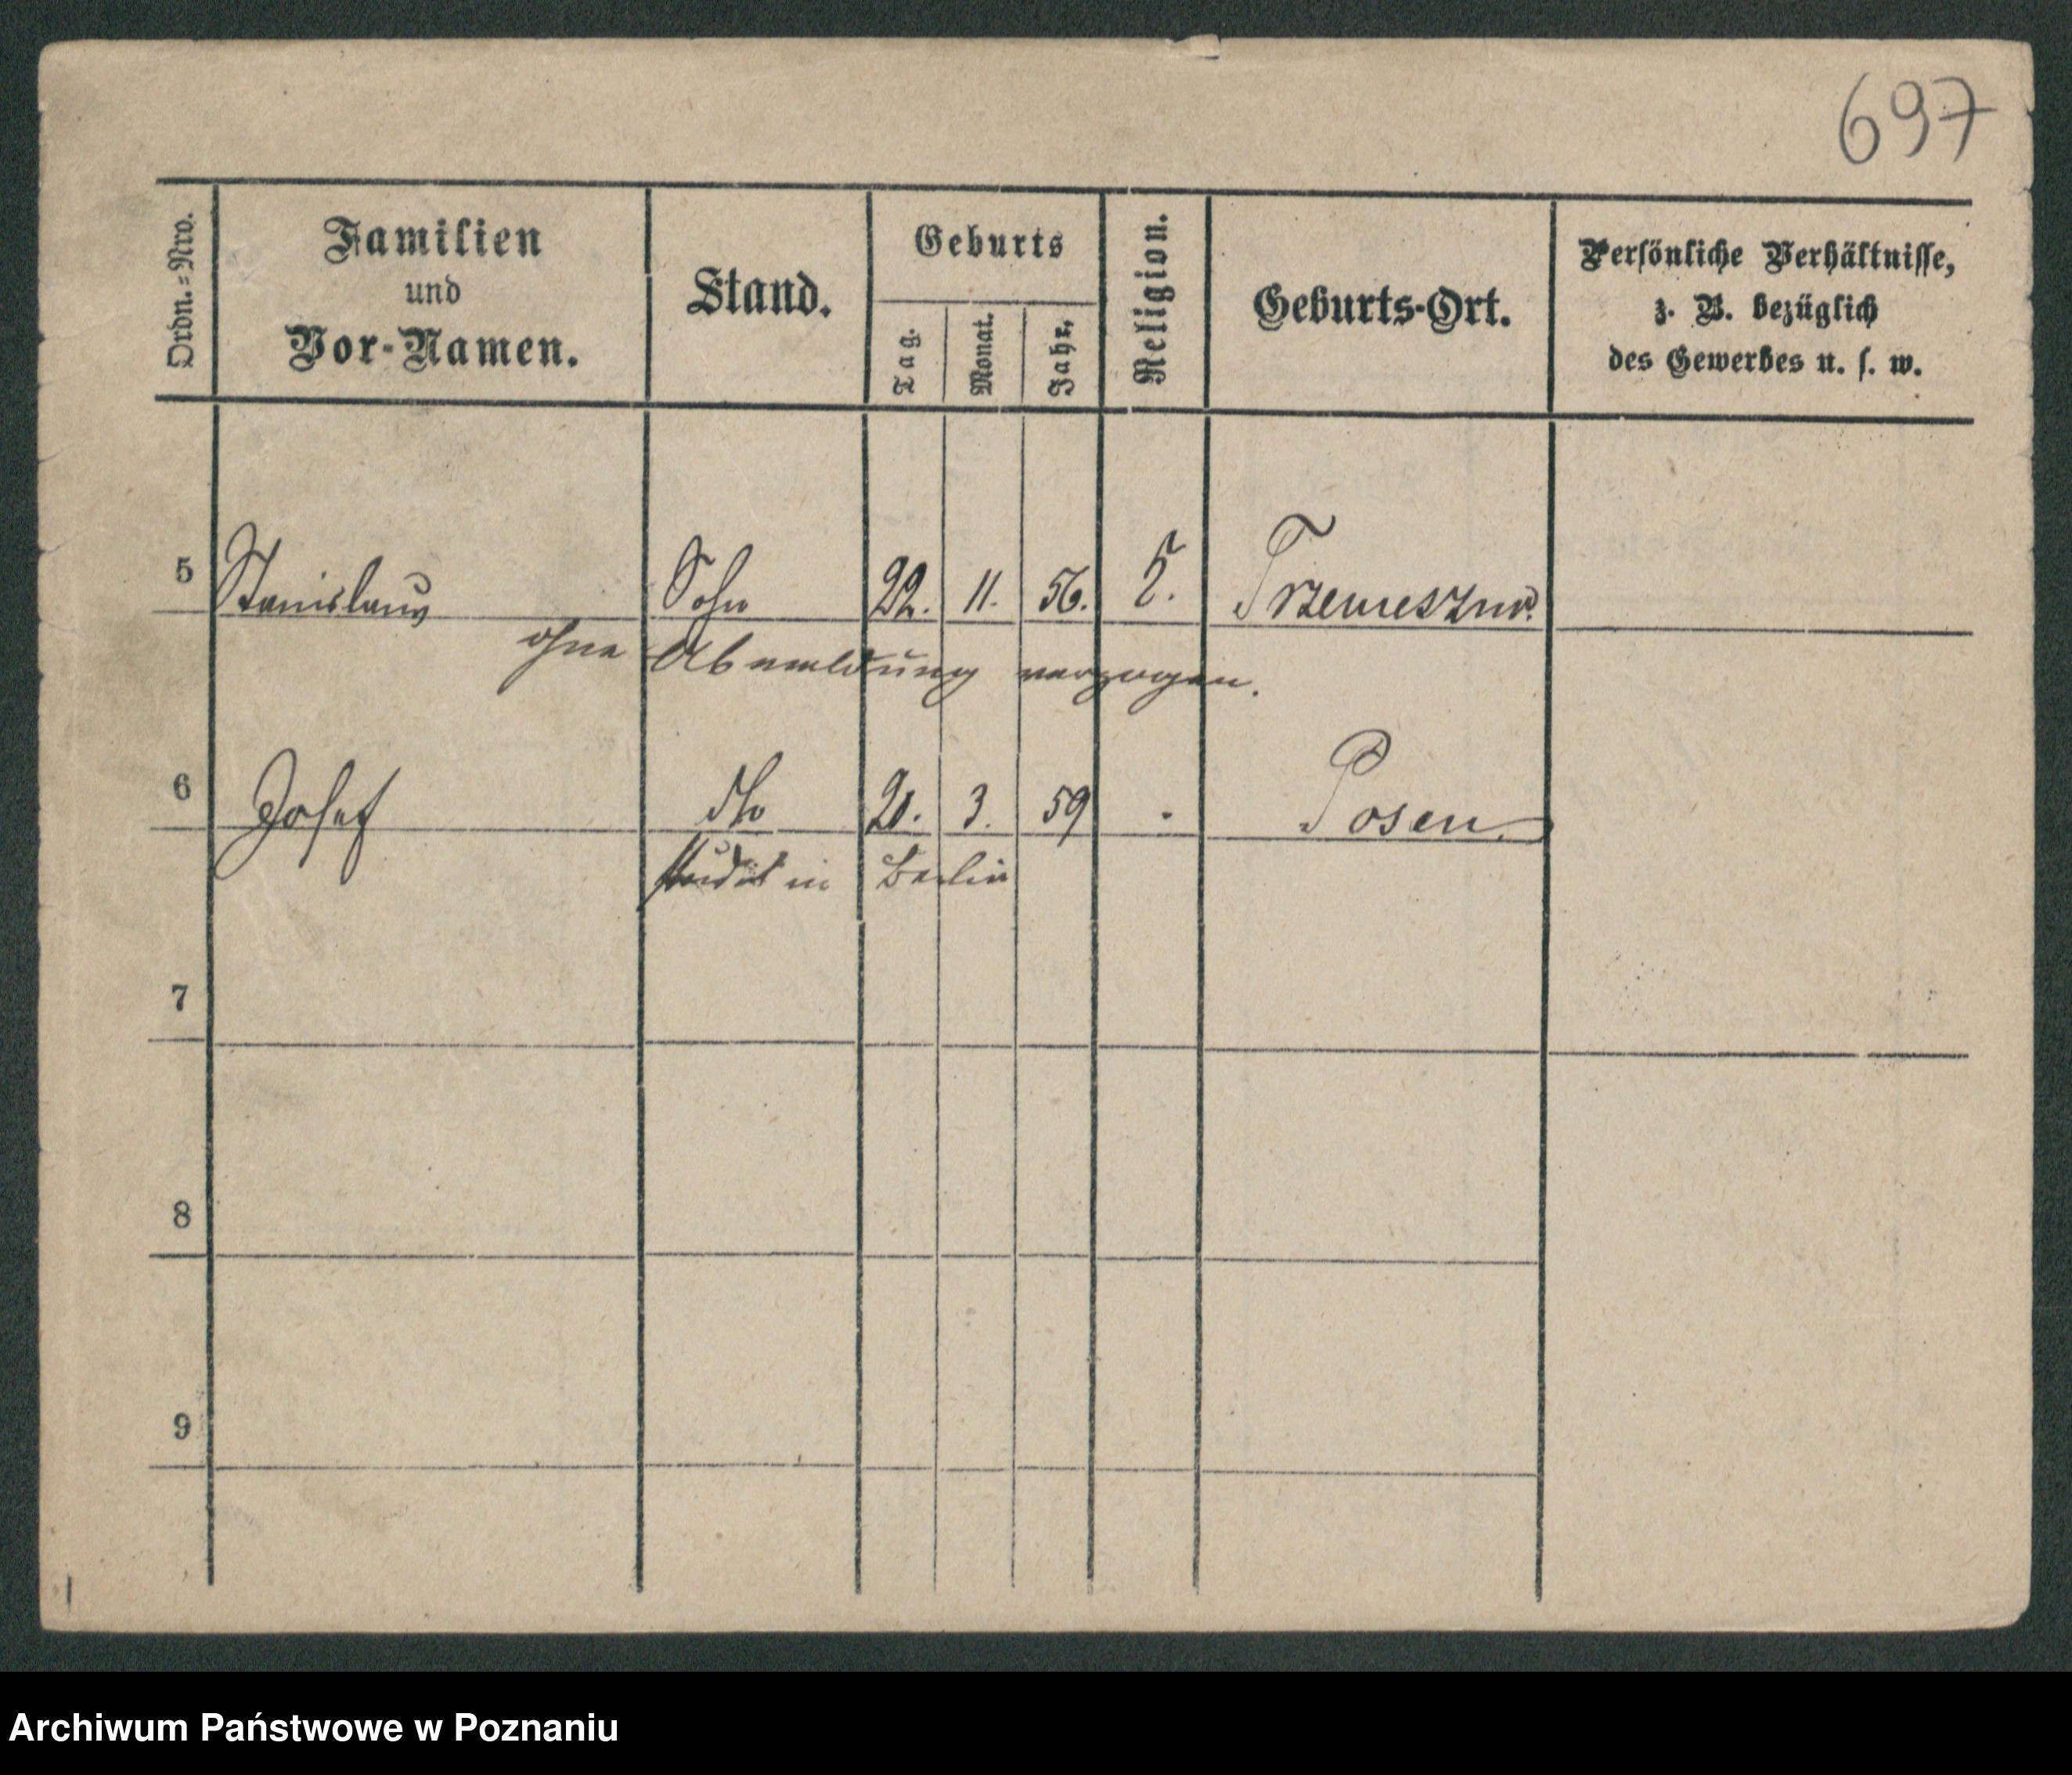 697
Ordn.=Nro.
Familien
und
Vor-Namen.
Stand.
Geburts
Tag.
Monat.
Jahr.
Religion.
Geburts-Ort.
Persönliche Verhältnisse,
z. B. bezüglich
des Gewerbes u. s. w.
5 Stanislaus Sohn 22. 11. 56. Trzemeszno.
ohne Abmeldung verzogen.
6 Josef dto 20. 3. 59 Posen.
in Berlin
7
8
9
Archiwum Państwowe w Poznaniu